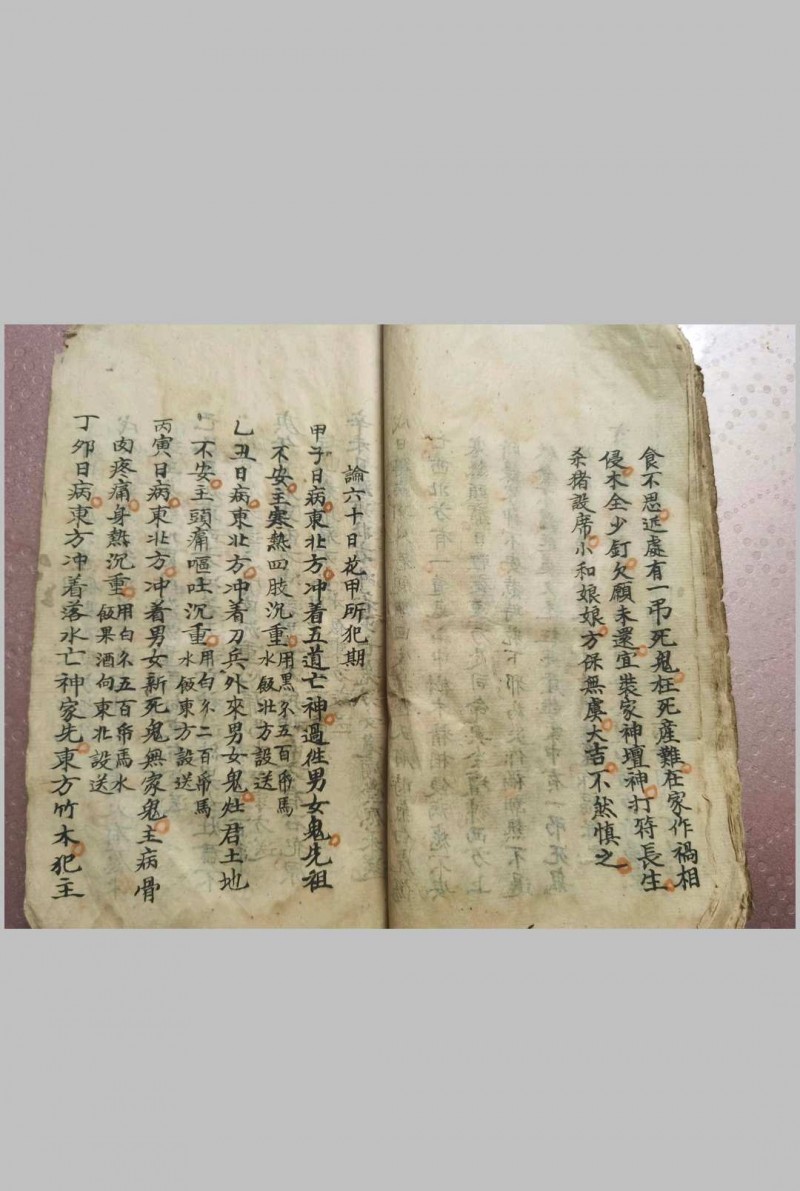 食不思近處有一吊死鬼枉死產難在家作禍相
侵木全少釘欠願未還宜裝家神壇神打符長生
杀猪設席小和娘娘方保無虞大吉不然慎之
論六十日花甲所犯期
甲子日病東北方冲着五道亡神過往男女鬼先祖
不安主寒熱四肢沉重用黑𠆩五百帋馬
水飯北方設送
乙丑日病東北方冲着刀兵外來男女鬼灶君土地
不安主頭痛嘔吐沉重用白𠆩二百帋馬
水飯東方設送
丙寅日病東北方冲着男女新死鬼無家鬼主病骨
肉疼痛身熱沉重用白𠆩五百帋馬水
飯果酒向東北設送
丁夘日病東方冲着落水亡神家先東方竹木犯主